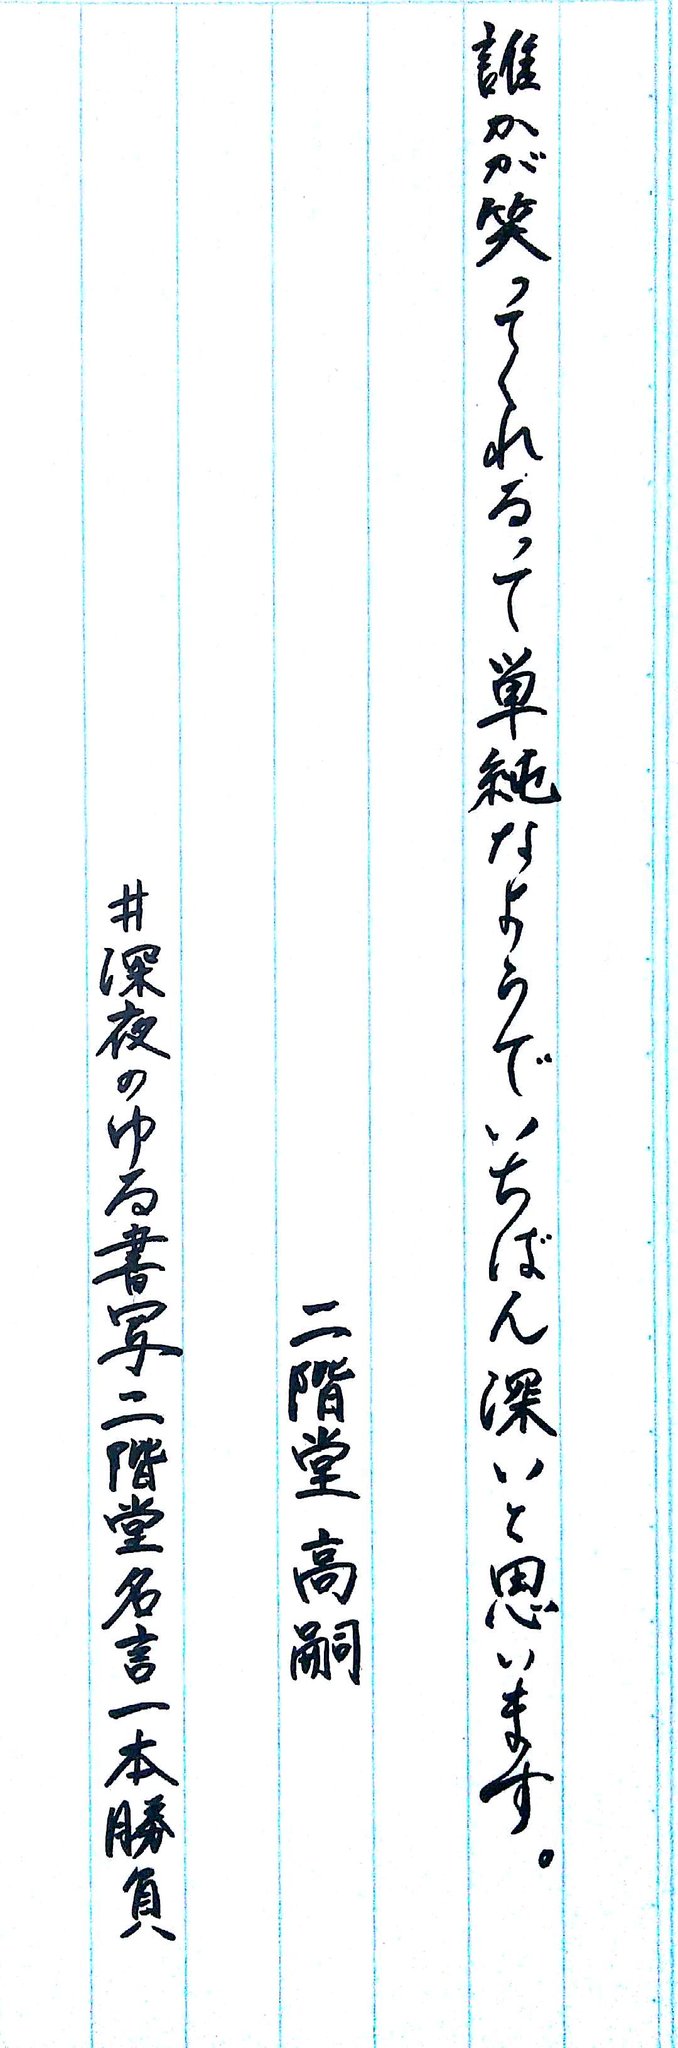 誰かが笑ってくれるって単純なようでいちばん深いと思います。
二階堂高嗣
#深夜のゆる書写二階堂名言一本勝負